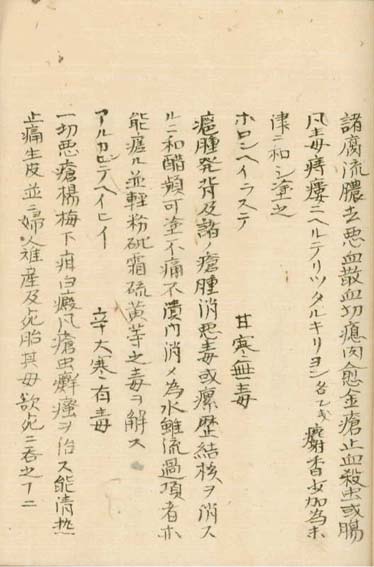 諸腐流膿去悪血散血切瘜肉愈金瘡止血殺虫或腸
風毒痔瘻ニヘルテリツタルキリヨン各乙戔麝香少加為末
津ニ和シ塗之
ホロシヘイラステ　甘寒無毒
瘟腫発背及諸ノ瘡腫消悪毒或瘰歴結核ヲ消ス
ルニ和醋頻可塗不痛不潰内消メ為水雖流過項者亦
能癒ル並軽粉砒霜硫黄等之毒ヲ解ス
アルカビテヘイヒイ　辛大寒有毒
一切悪瘡楊梅下疳白癜風瘡虫癬瘙ヲ治ス能清热
止痛生皮並ニ婦人难産及死胎其母欲死ニ吞之丁二